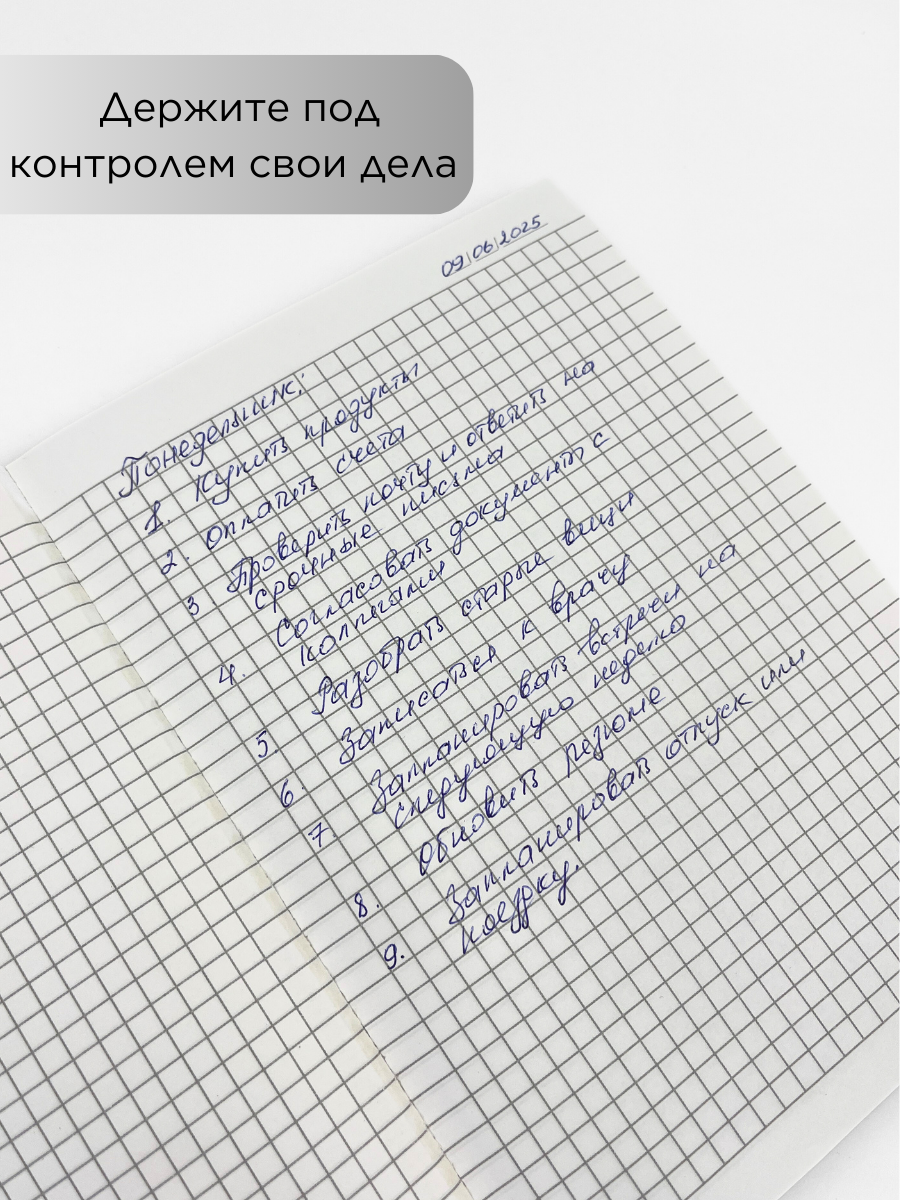 Держите под
контролем свои дела
09|06|2025
Понедельник:
1. Купить продукты
2. Оплатить счета
3 Проверить почту и ответить на
срочные письма
4. Согласовать документы с
коллегами
5 Разобрать старые вещи
6. Записаться к врачу
7 Запланировать встречи на
следующую неделю
8. Обновить резюме
9. Запланировать отпуск или
поездку.